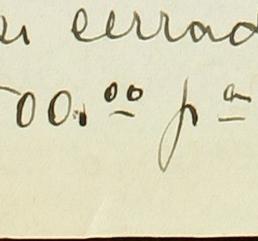 cerrad
00.00 pa